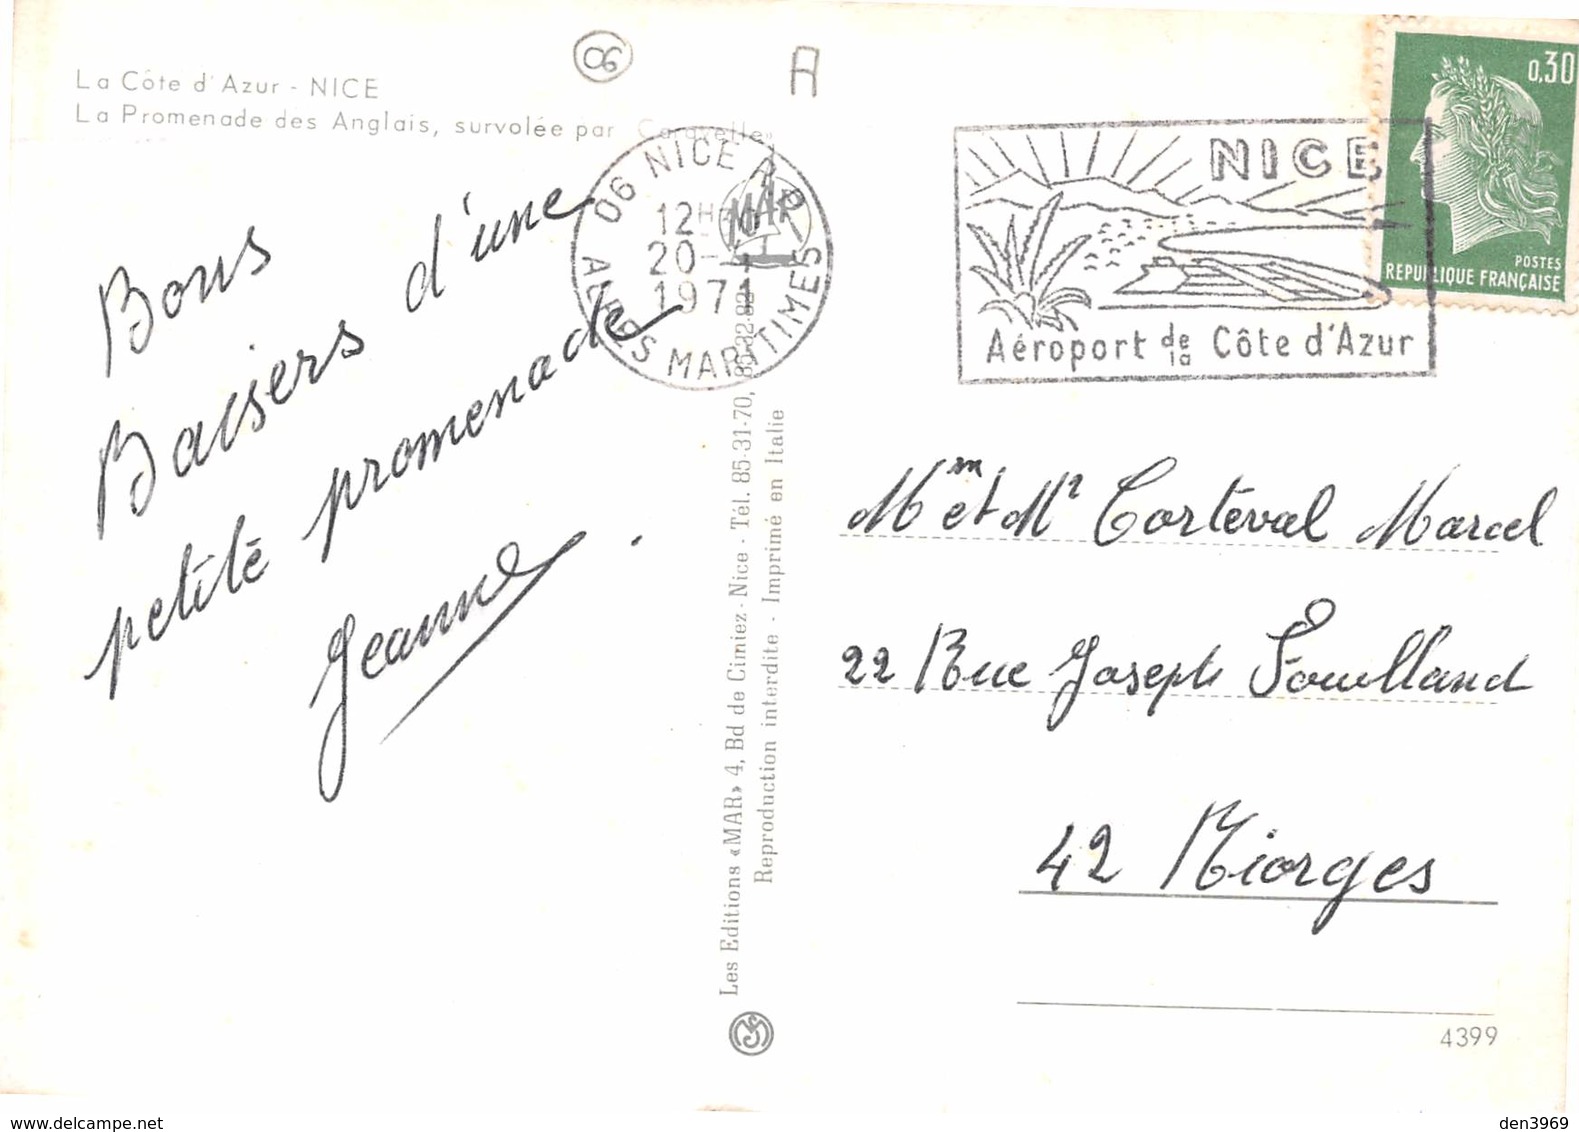 La Côte d'Azur - NICE
La Promenade des Anglais, survolée par «Caravelle»
06
A
06 NICE AP
12H
20-
1971
ALPES MARITIMES
MAR
NICE
Aéroport de la Côte d'Azur
0,30
POSTES
REPUBLIQUE FRANÇAISE
Bons
Baisers d'une
petite promenade
Jeanne.
Les Editions «MAR» 4, Bd de Cimiez - Nice - Tél. 85-31-70, 85-32-82
Reproduction interdite - Imprimé en Italie
Mm et Mr Corteval Marcel
22 Rue Joseph Fouilland
42 Riorges
4399
delcampe.net
den3969